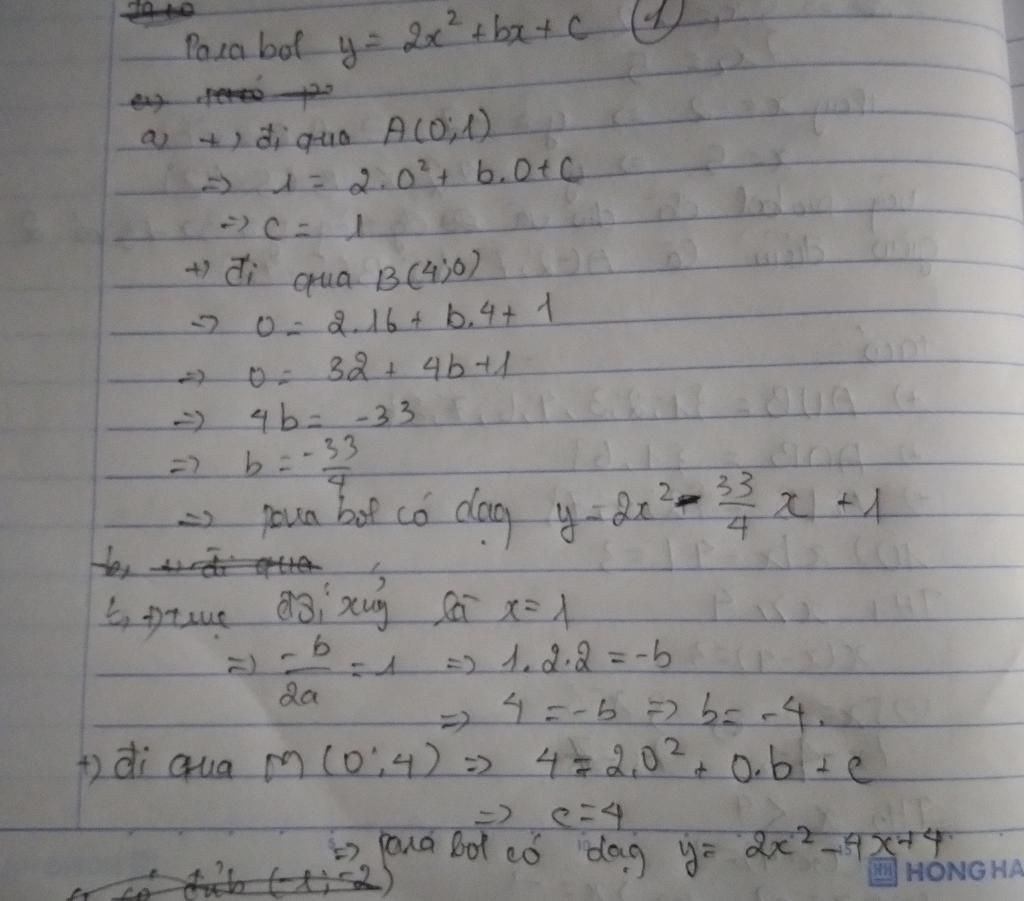 Parabol y = 2x² + bx + c (1)
a, +) đi qua A(0;1)
=> 1 = 2.0² + b.0 + c
=> c = 1
+) đi qua B(4;0)
=> 0 = 2.16 + b.4 + 1
=> 0 = 32 + 4b + 1
=> 4b = -33
=> b = -33/4
=> parabol có dạg y = 2x² - 33/4 x + 1
b, +) đi qua
b, +) trục đối xứg là x = 1
=> -b/2a = 1 => 1.2.2 = -b
=> 4 = -b => b = -4.
+) đi qua M(0;4) => 4 = 2.0² + 0.b + c
=> c = 4
=> parabol có dạg y = 2x² - 4x + 4
có đỉnh (-1;-2)
HONG HA